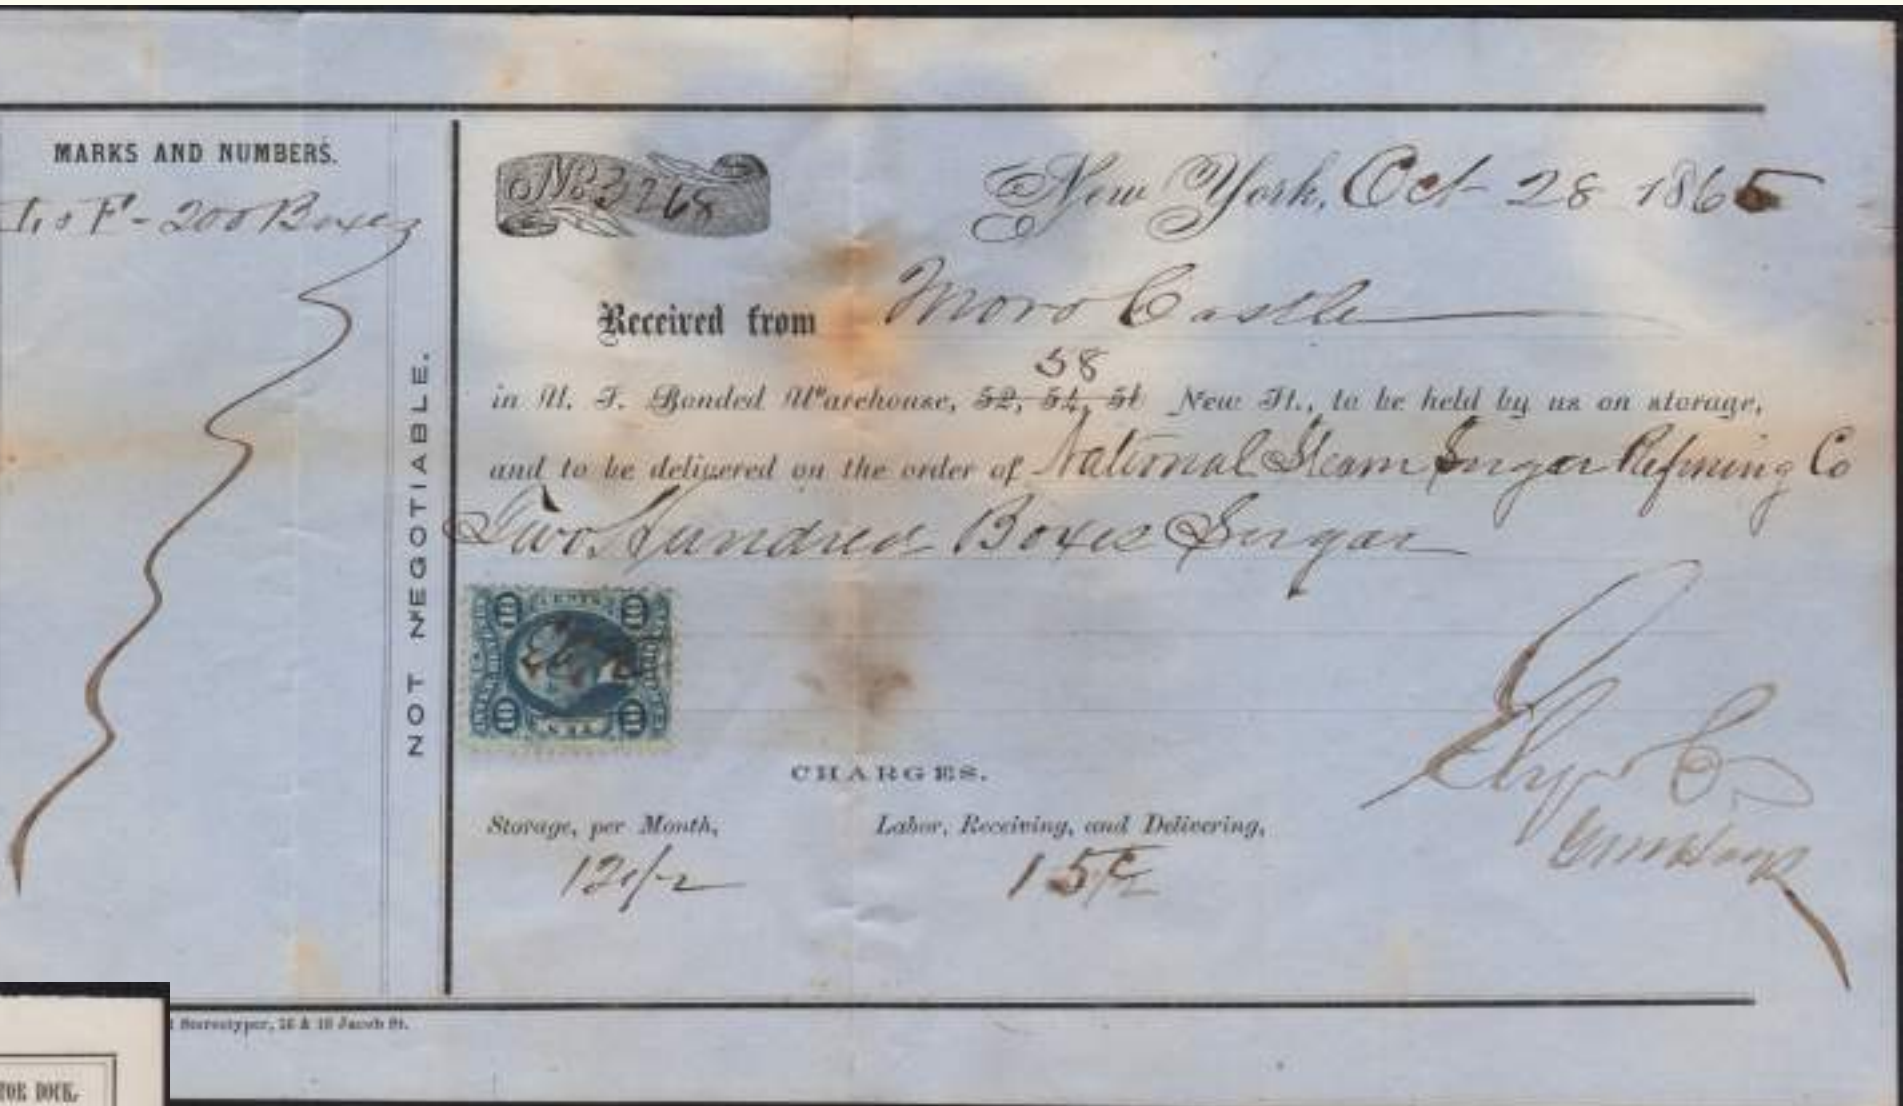 MARKS AND NUMBERS.
F - 200 Boxes
NOT NEGOTIABLE.
No. 3268
New York, Oct 28 1865
Received from Moro Castle
58
in U. S. Bonded Warehouse, 52, 54, 56 New St., to be held by us on storage,
and to be delivered on the order of National Steam Sugar Refining Co
Two Hundred Boxes Sugar
10 CENTS 10
10 TEN 10
CHARGES.
Storage, per Month,
Labor, Receiving, and Delivering,
12 1/2
15
Stereotyper, 16 & 18 Jacob St.
DOCK.